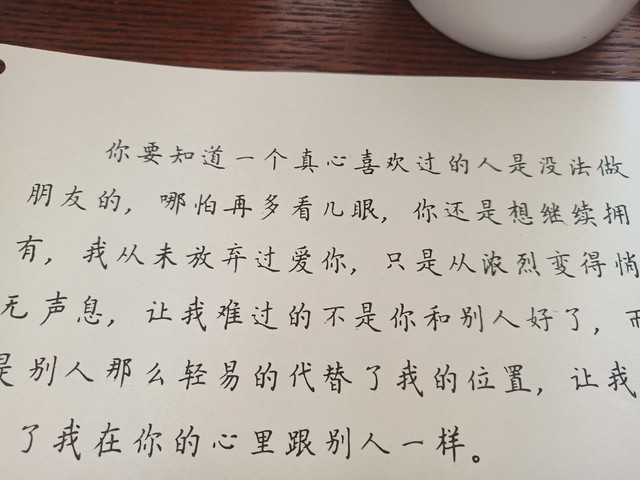 你要知道一个真心喜欢过的人是没法做
朋友的，哪怕再多看几眼，你还是想继续拥
有，我从未放弃过爱你，只是从浓烈变得悄
无声息，让我难过的不是你和别人好了，而
是别人那么轻易的代替了我的位置，让我
了我在你的心里跟别人一样。